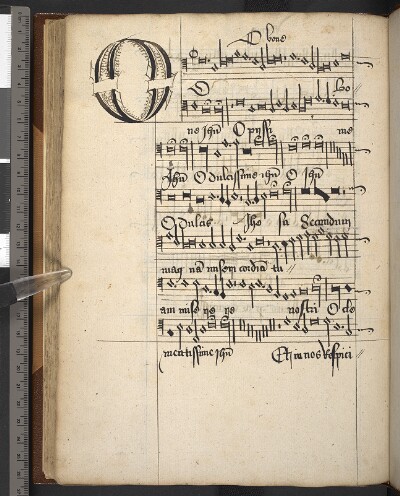 O bone
O bo
ne Jhu O pyssi me
Jhu O dulcissime ihu O Jhu
O dulcis Jhu Secundum
mag na misericordia tu
am mise re re nostri O cle
mentissime Jhu Et in nos respici